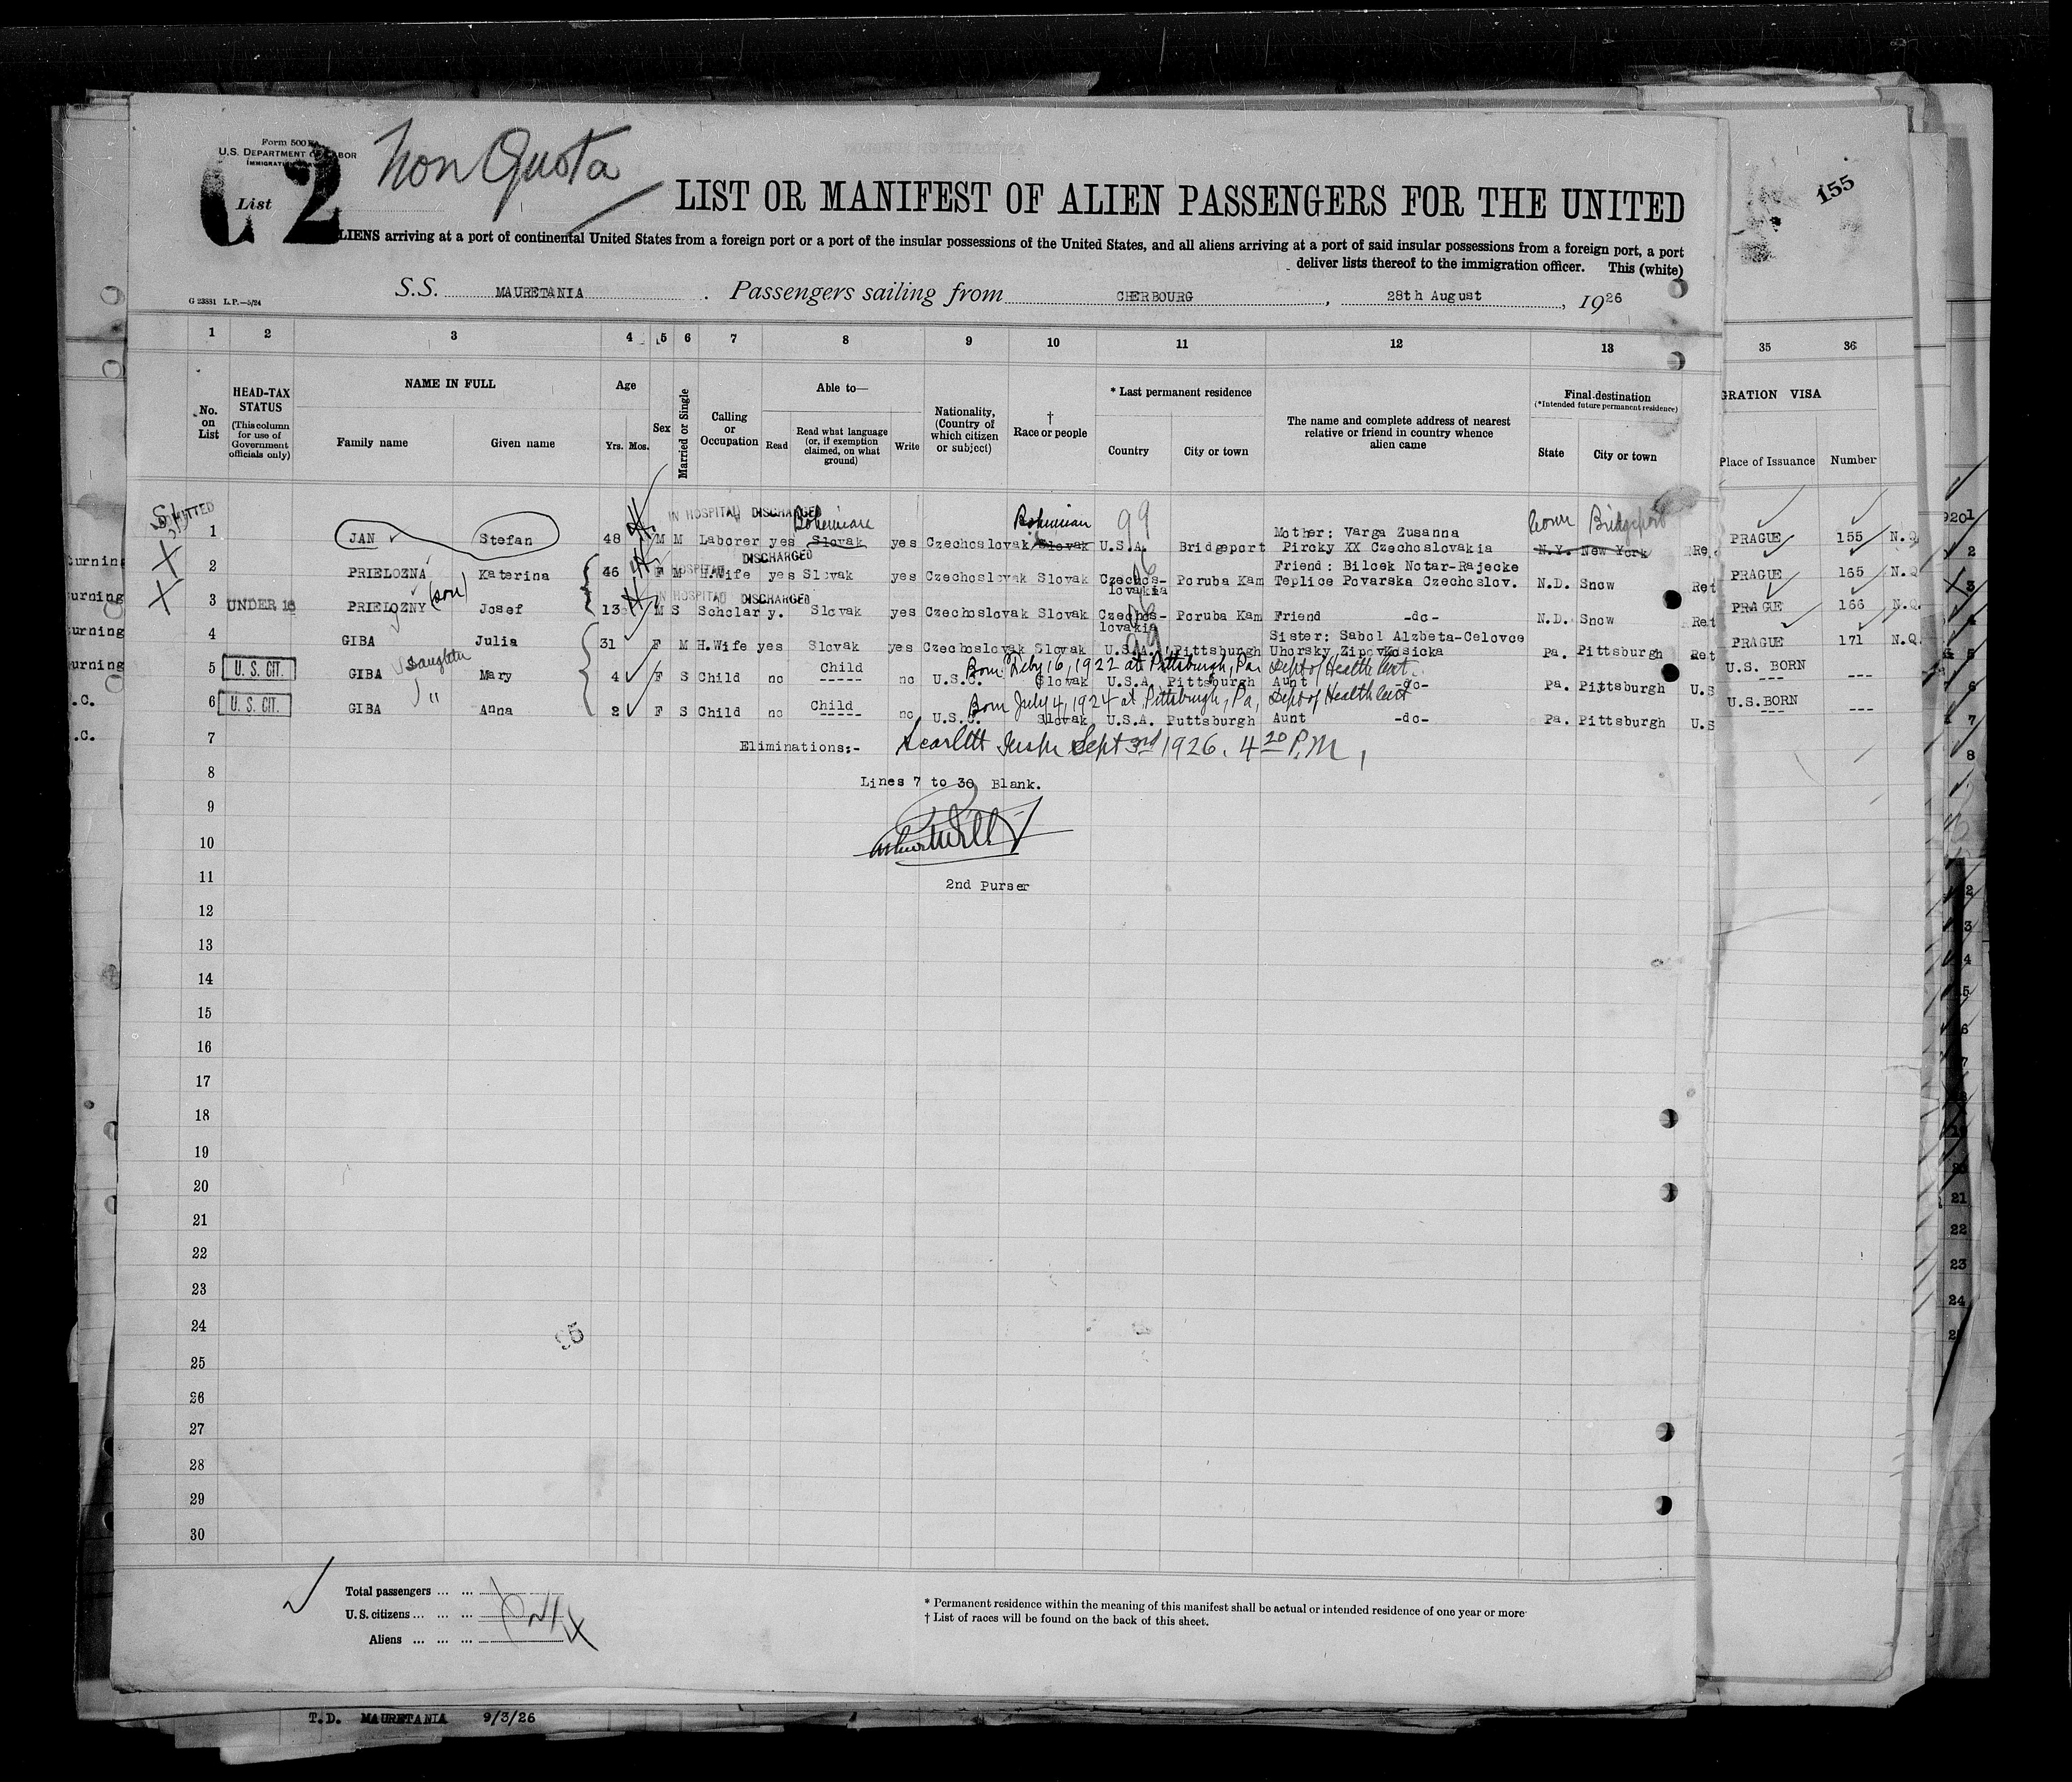 Form 500
U.S. DEPARTMENT OF LABOR
Non Quota
List C 2
155
LIST OR MANIFEST OF ALIEN PASSENGERS FOR THE UNITED
LIENS arriving at a port of continental United States from a foreign port or a port of the insular possessions of the United States, and all aliens arriving at a port of said insular possessions from a foreign port, a port
deliver lists thereof to the immigration officer. This (white)
G 23881 L.P.—5/24
S.S. MAURETANIA. Passengers sailing from CHERBOURG, 28th August, 1926
1 2 3 4 5 6 7 8 9 10 11 12 13 35 36
No. on List
HEAD-TAX STATUS (This column for use of Government officials only)
NAME IN FULL
Family name Given name
Age
Yrs. Mos.
Sex
Married or Single
Calling or Occupation
Able to—
Read Read what language (or, if exemption claimed, on what ground) Write
Nationality, (Country of which citizen or subject)
† Race or people
* Last permanent residence
Country City or town
The name and complete address of nearest relative or friend in country whence alien came
Final destination (*Intended future permanent residence)
State City or town
GRATION VISA
Place of Issuance Number
ADMITTED
IN HOSPITAL DISCHARGED
Bohemian Bohemian 99 Conn Bridgeport
1 JAN Stefan 48 M M Laborer yes Slovak yes Czechoslovak Slovak U.S.A. Bridgeport Mother: Varga Zusanna Pircky XX Czechoslovakia N.Y. New York Re PRAGUE 155 N.Q
HOSPITAL DISCHARGED
2 PRIELOZNA Katerina 46 F M H.Wife yes Slovak yes Czechoslovak Slovak Czechoslovakia Poruba Kam Friend: Bilcek Notar-Rajecke Teplice Povarska Czechoslov. N.D. Snow Ret PRAGUE 165 N.Q
IN HOSPITAL DISCHARGED
3 UNDER 16 PRIELOZNY (son) Josef 13 M S Scholar y. Slovak yes Czechoslovak Slovak Czechoslovakia Poruba Kam Friend -do- N.D. Snow Ret PRAGUE 166 N.Q.
4 GIBA Julia 31 F M H.Wife yes Slovak yes Czechoslovak Slovak U.S.A. Pittsburgh Sister: Sabol Alzbeta-Celovce Uhorsky Zipov Kosicka Pa. Pittsburgh Ret PRAGUE 171 N.Q.
Born Feby 16, 1922 at Pittsburgh, Pa Dept of Health Cert.
5 U.S. CIT. GIBA daughter Mary 4 F S Child no Child ----- no U.S.C. Slovak U.S.A. Pittsburgh Aunt -do- Pa. Pittsburgh U.S U.S. BORN --- ---
Born July 4, 1924 at Pittsburgh, Pa, Dept of Health Cert
6 U.S. CIT. GIBA " Anna 2 F S Child no Child ----- no U.S.C. Slovak U.S.A. Puttsburgh Aunt -do- Pa. Pittsburgh U.S U.S.BORN --- ---
7 Eliminations:- Scarlett Insp Sept 3rd 1926. 4 20 P.M,
8 Lines 7 to 30 Blank.
9
10
11 2nd Purser
12
13
14
15
16
17
18
19
20
21
22
23
24
25
26
27
28
29
30
Total passengers ... ...
U.S. citizens ... ... ...
Aliens ... ... ...
* Permanent residence within the meaning of this manifest shall be actual or intended residence of one year or more
† List of races will be found on the back of this sheet.
T.D. MAURETANIA 9/3/26